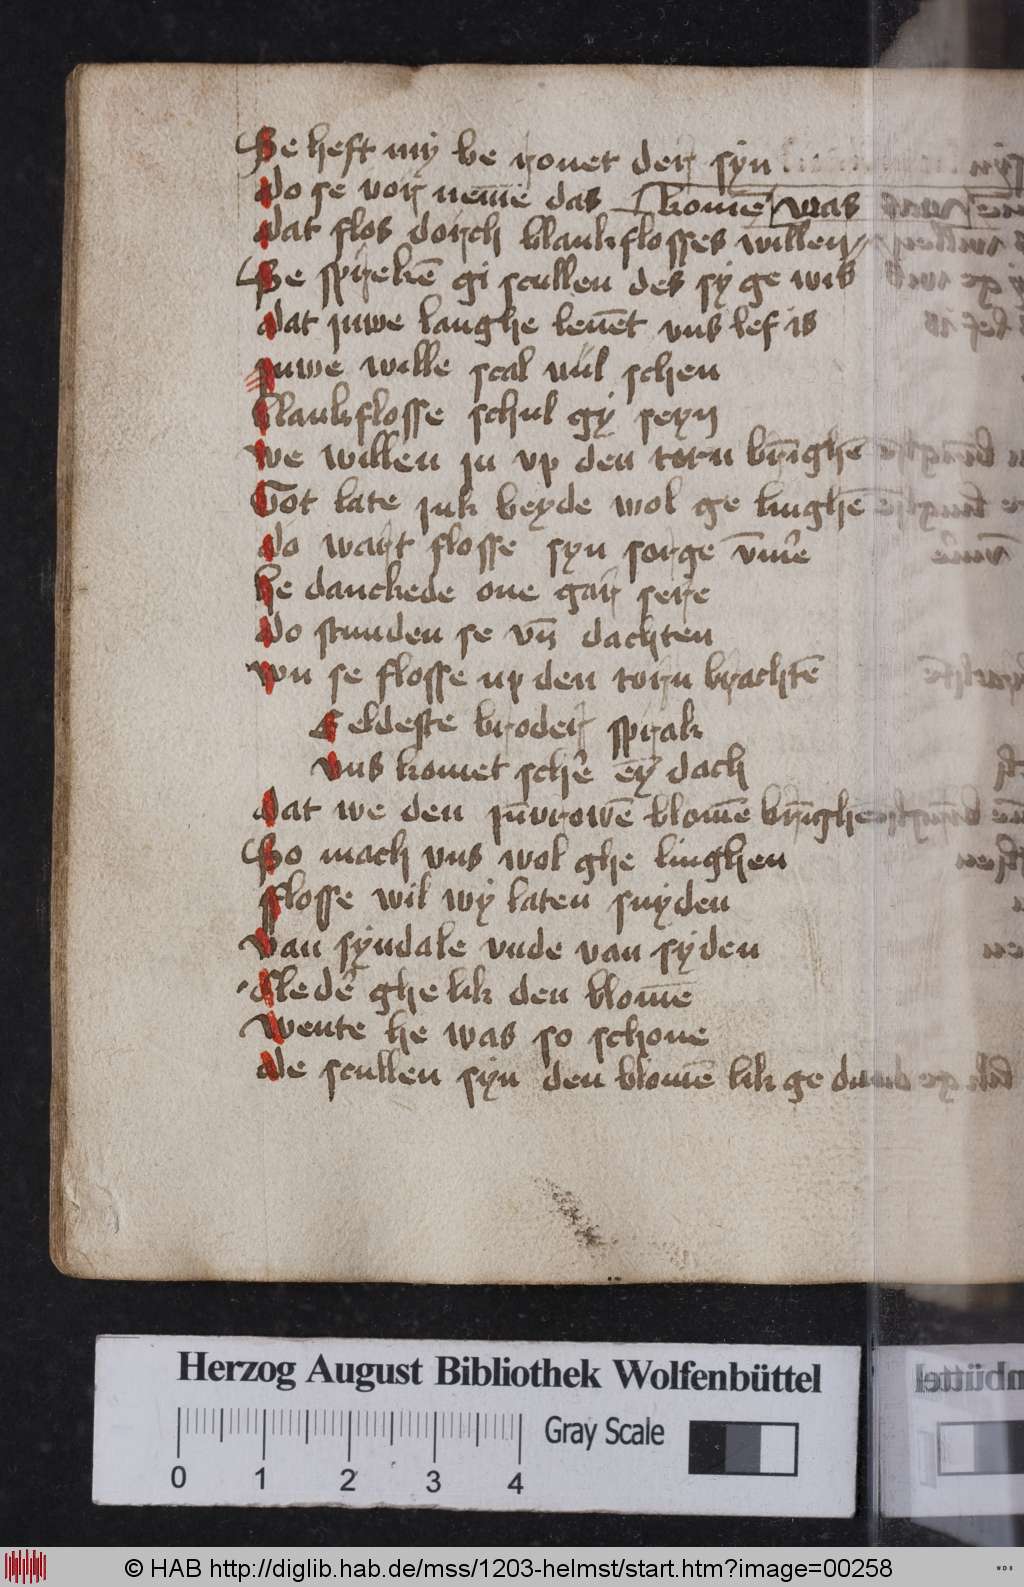 Se heft my be rouet der syn
do se vor nemē das komē was
dat flos dorch blankflosses willen
Se sprekē gi scullen des sy ge wis
dat juwe langhe leuēt vns lef is
juwe wille scal vul schen
blankflosse schul gy seyn
we willen ju vp den torn brīghē
Got late juk beyde wol ge linghē
do wart flosse syn sorge vm̄e
he danckede one gar sere
do stunden se vn̄ dachten
wu se flosse up den torn brachtē
E eldeste broder sprak
vns komet schē ey dach
dat we den jūvrowē blomē brīghē
So mach vns wol ghe linghen
flosse wil wy laten snyden
van syndale vnde van syden
kledē ghe lik den blomē
wente he was so schone
de scullen syn den blomē lik ge dan
Herzog August Bibliothek Wolfenbüttel
Gray Scale
0 1 2 3 4
© HAB http://diglib.hab.de/mss/1203-helmst/start.htm?image=00258